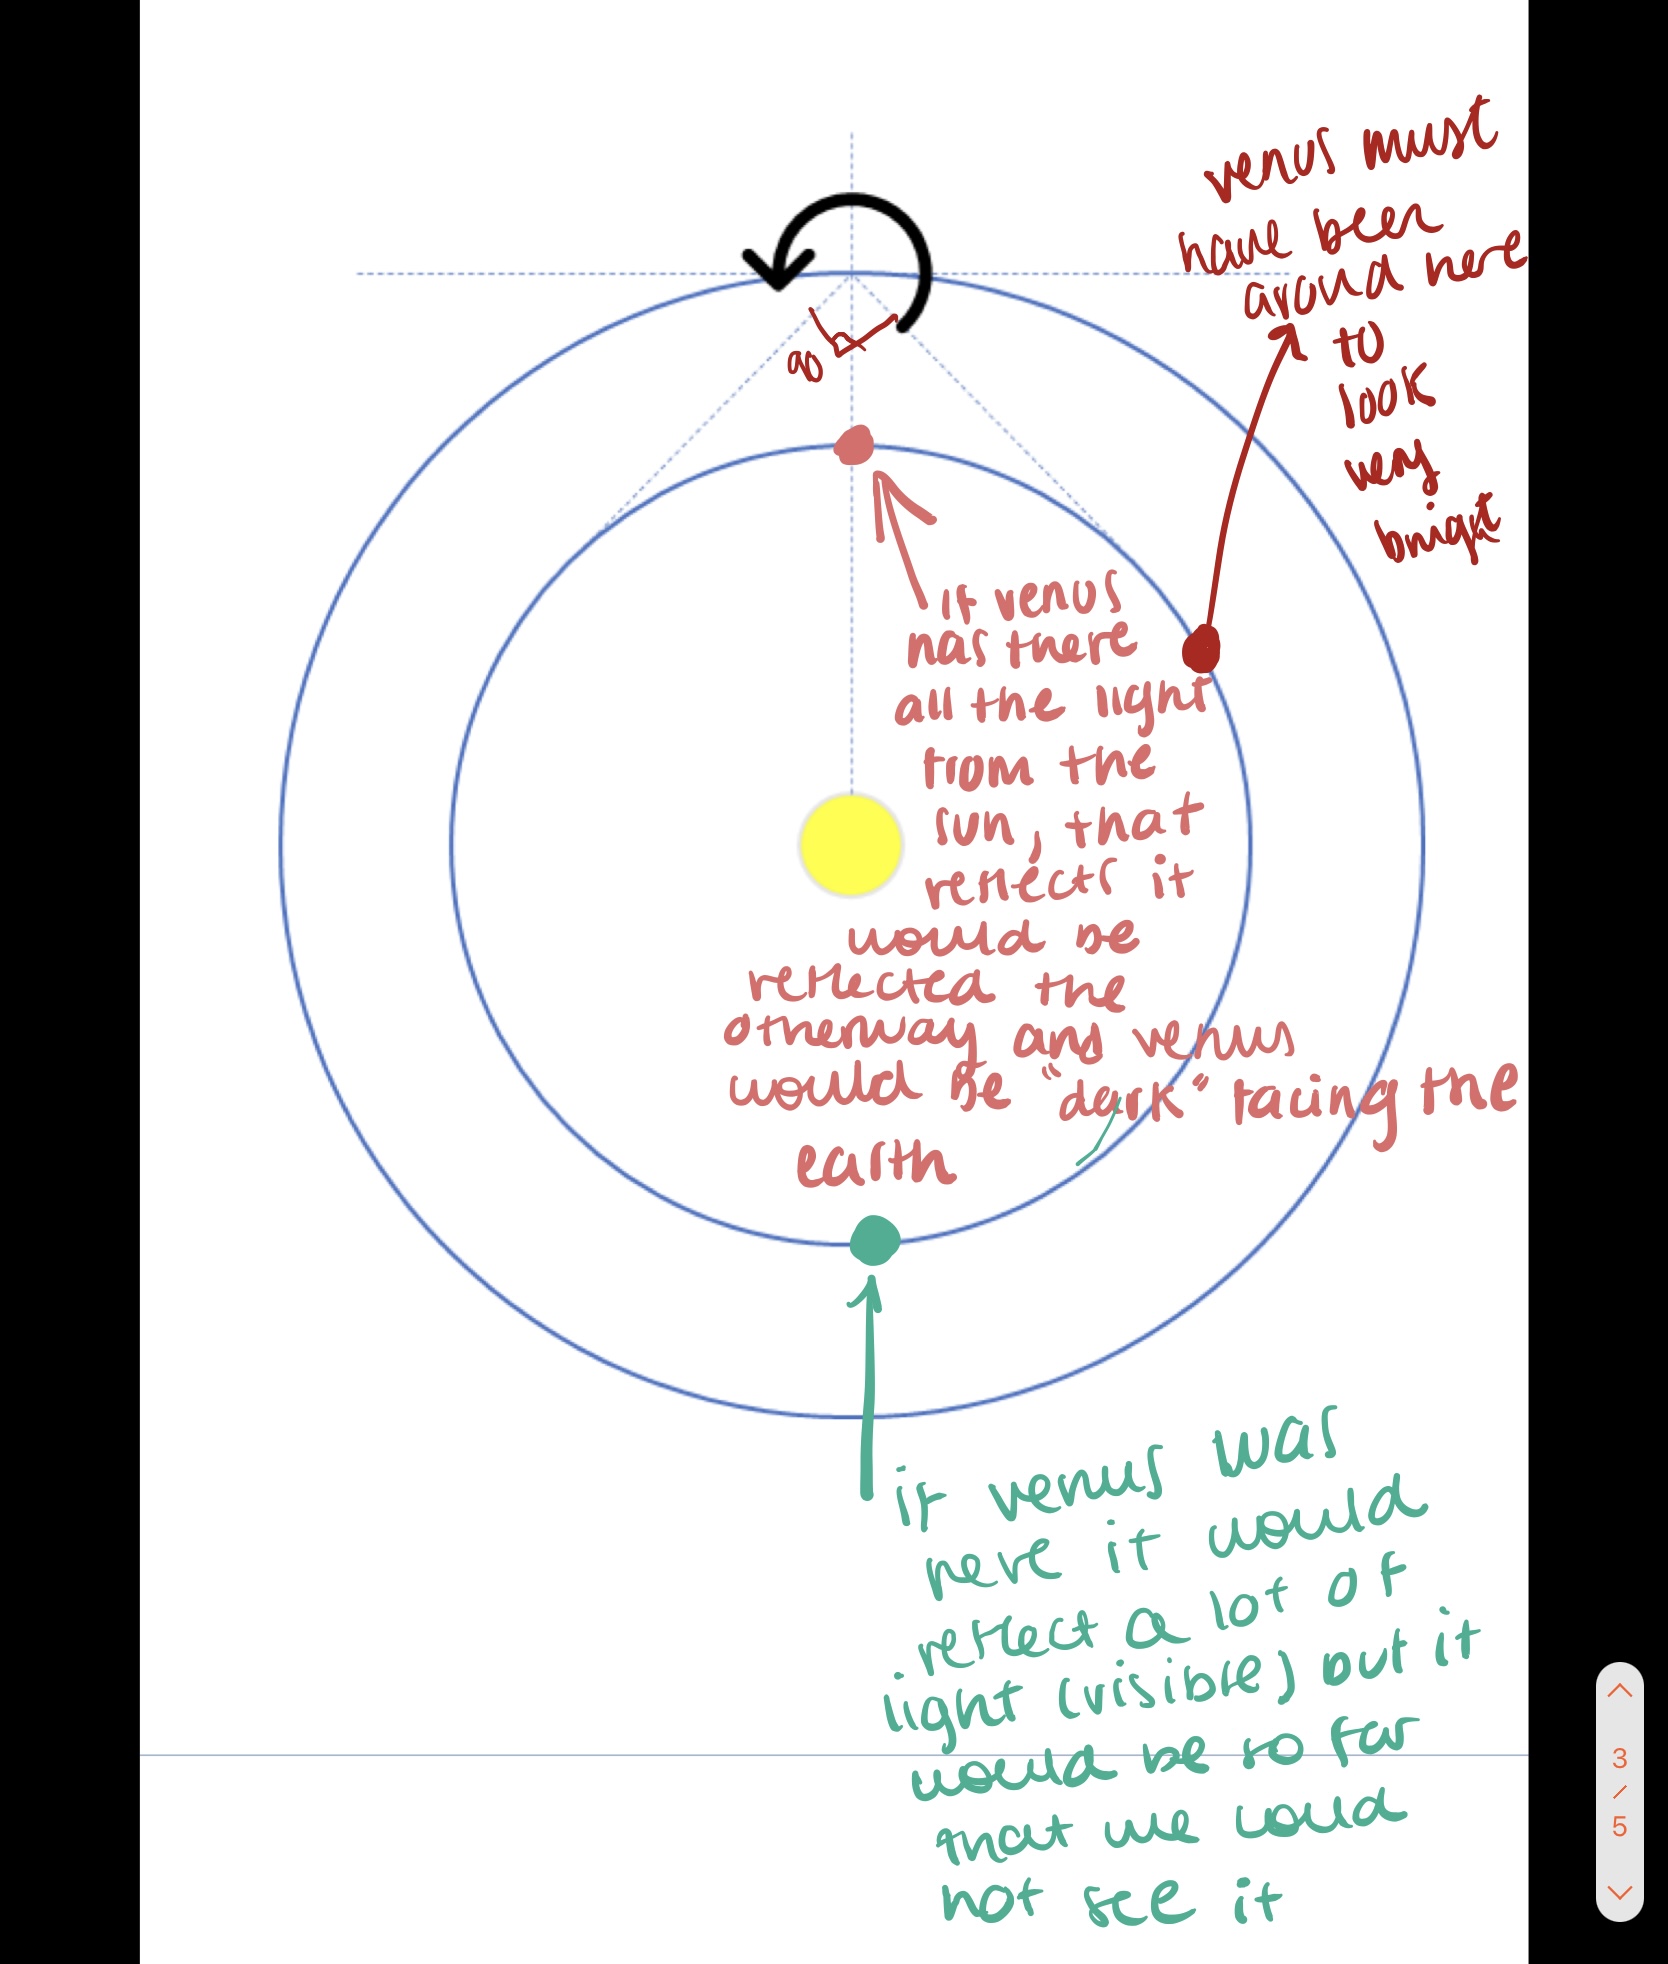 venus must
have been
around here
to
look
very
bright
90
if venus
was there
all the light
from the
sun, that
reflects it
would be
reflected the
otherway and venus
would be "dark" facing the
earth
if venus was
here it would
reflect a lot of
light (visible) but it
would be so far
that we could
not see it
3
/
5